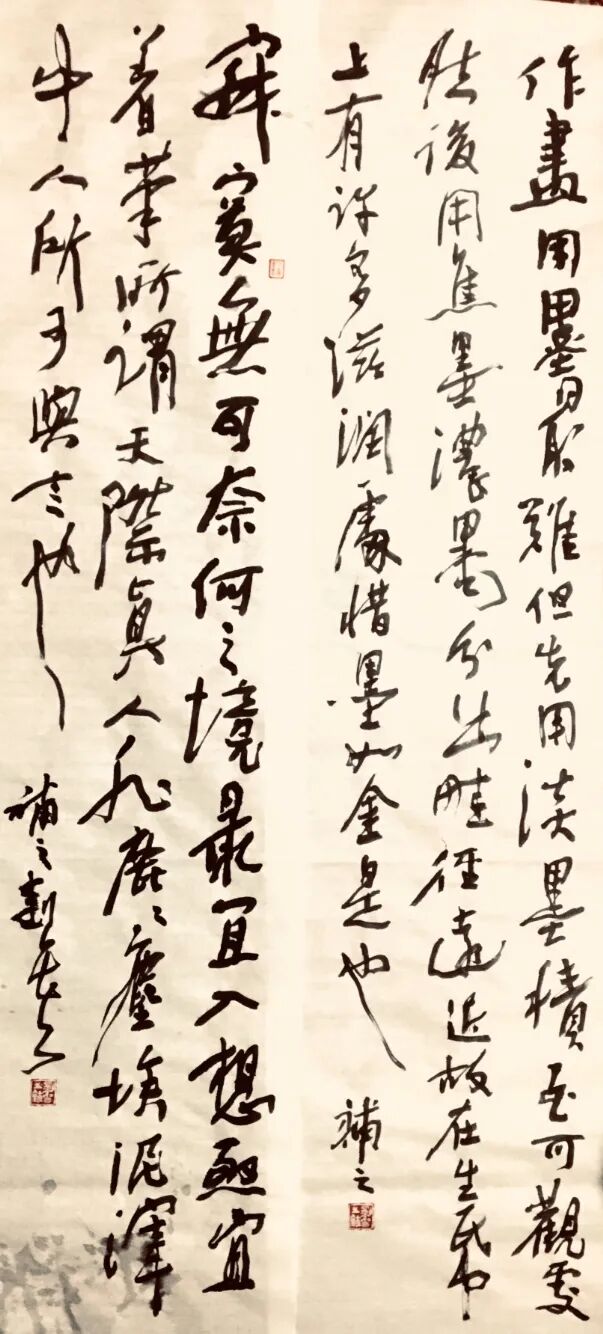 作畫用墨最難但先用淡墨積至可觀處
然後用焦墨濃墨分出畦徑遠近故在生紙
上有許多滋潤處惜墨如金是也
補之
寂寞無可奈何之境最宜入想亟宜
着筆所謂天際真人非鹿鹿塵埃泥滓
中人所可與言也
補之劉